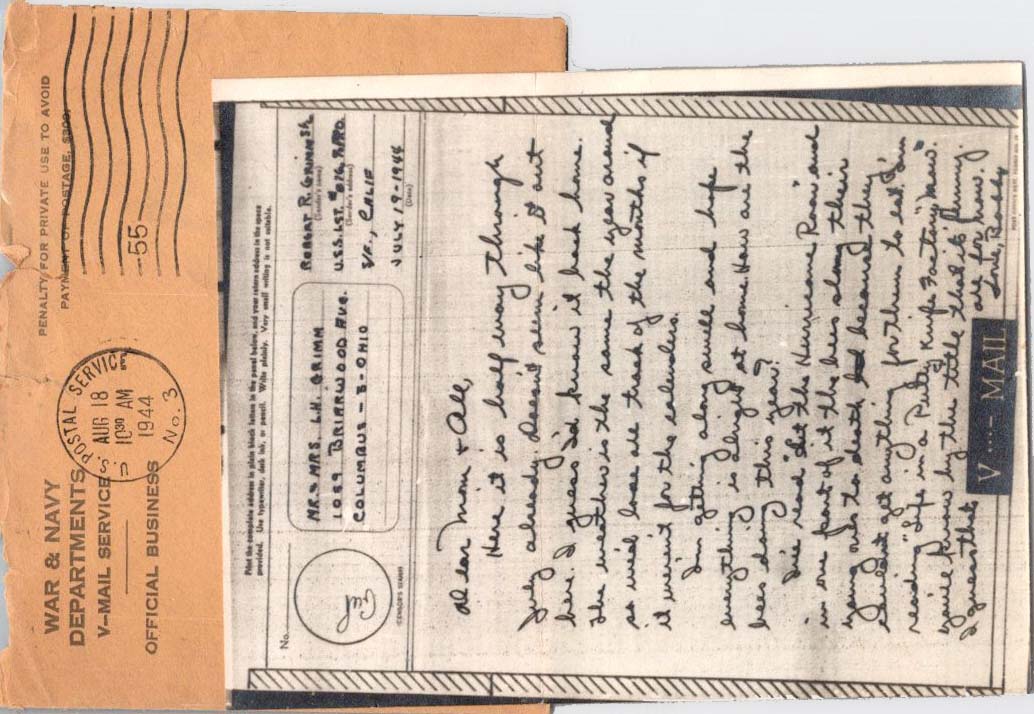 WAR & NAVY
DEPARTMENTS
V-MAIL SERVICE
OFFICIAL BUSINESS
PENALTY FOR PRIVATE USE TO AVOID
PAYMENT OF POSTAGE, $300.
U.S. POSTAL SERVICE
AUG 18
10 30 AM
1944
No. 3
55
Print the complete address in plain block letters in the panel below, and your return address in the space
provided. Use typewriter, dark ink, or pencil. Write plainly. Very small writing is not suitable.
No.
(CENSOR'S STAMP)
MR & MRS. L.H. GRIMM
1029 BRIARWOOD AVE.
COLUMBUS - 3 - OHIO
ROBERT R. GRIMM
(Sender's name)
U.S.S. LST.
(Sender's address)
S/F., CALIF
JULY 19-1944
(Date)
Dear Mom & All,
Here it is half way through
July already. Doesn't seem like it out
here. I guess I'd know it back home.
The weather is the same the year around
so we'd loose all track of the months if
it weren't for the calenders.
I'm getting along swell and hope
everything is alright at home. How are the
bees doing this year?
I've read "Let the Hurricane Roar" and
in one part of it the bees slong their
young ones to death because they
couldn't get anything for them to eat. I'm
reading "Life in a Putty Knife Factory" now.
You'll know by the title that it's funny.
I guess that's all for now.
Love, Bobby
V···– MAIL